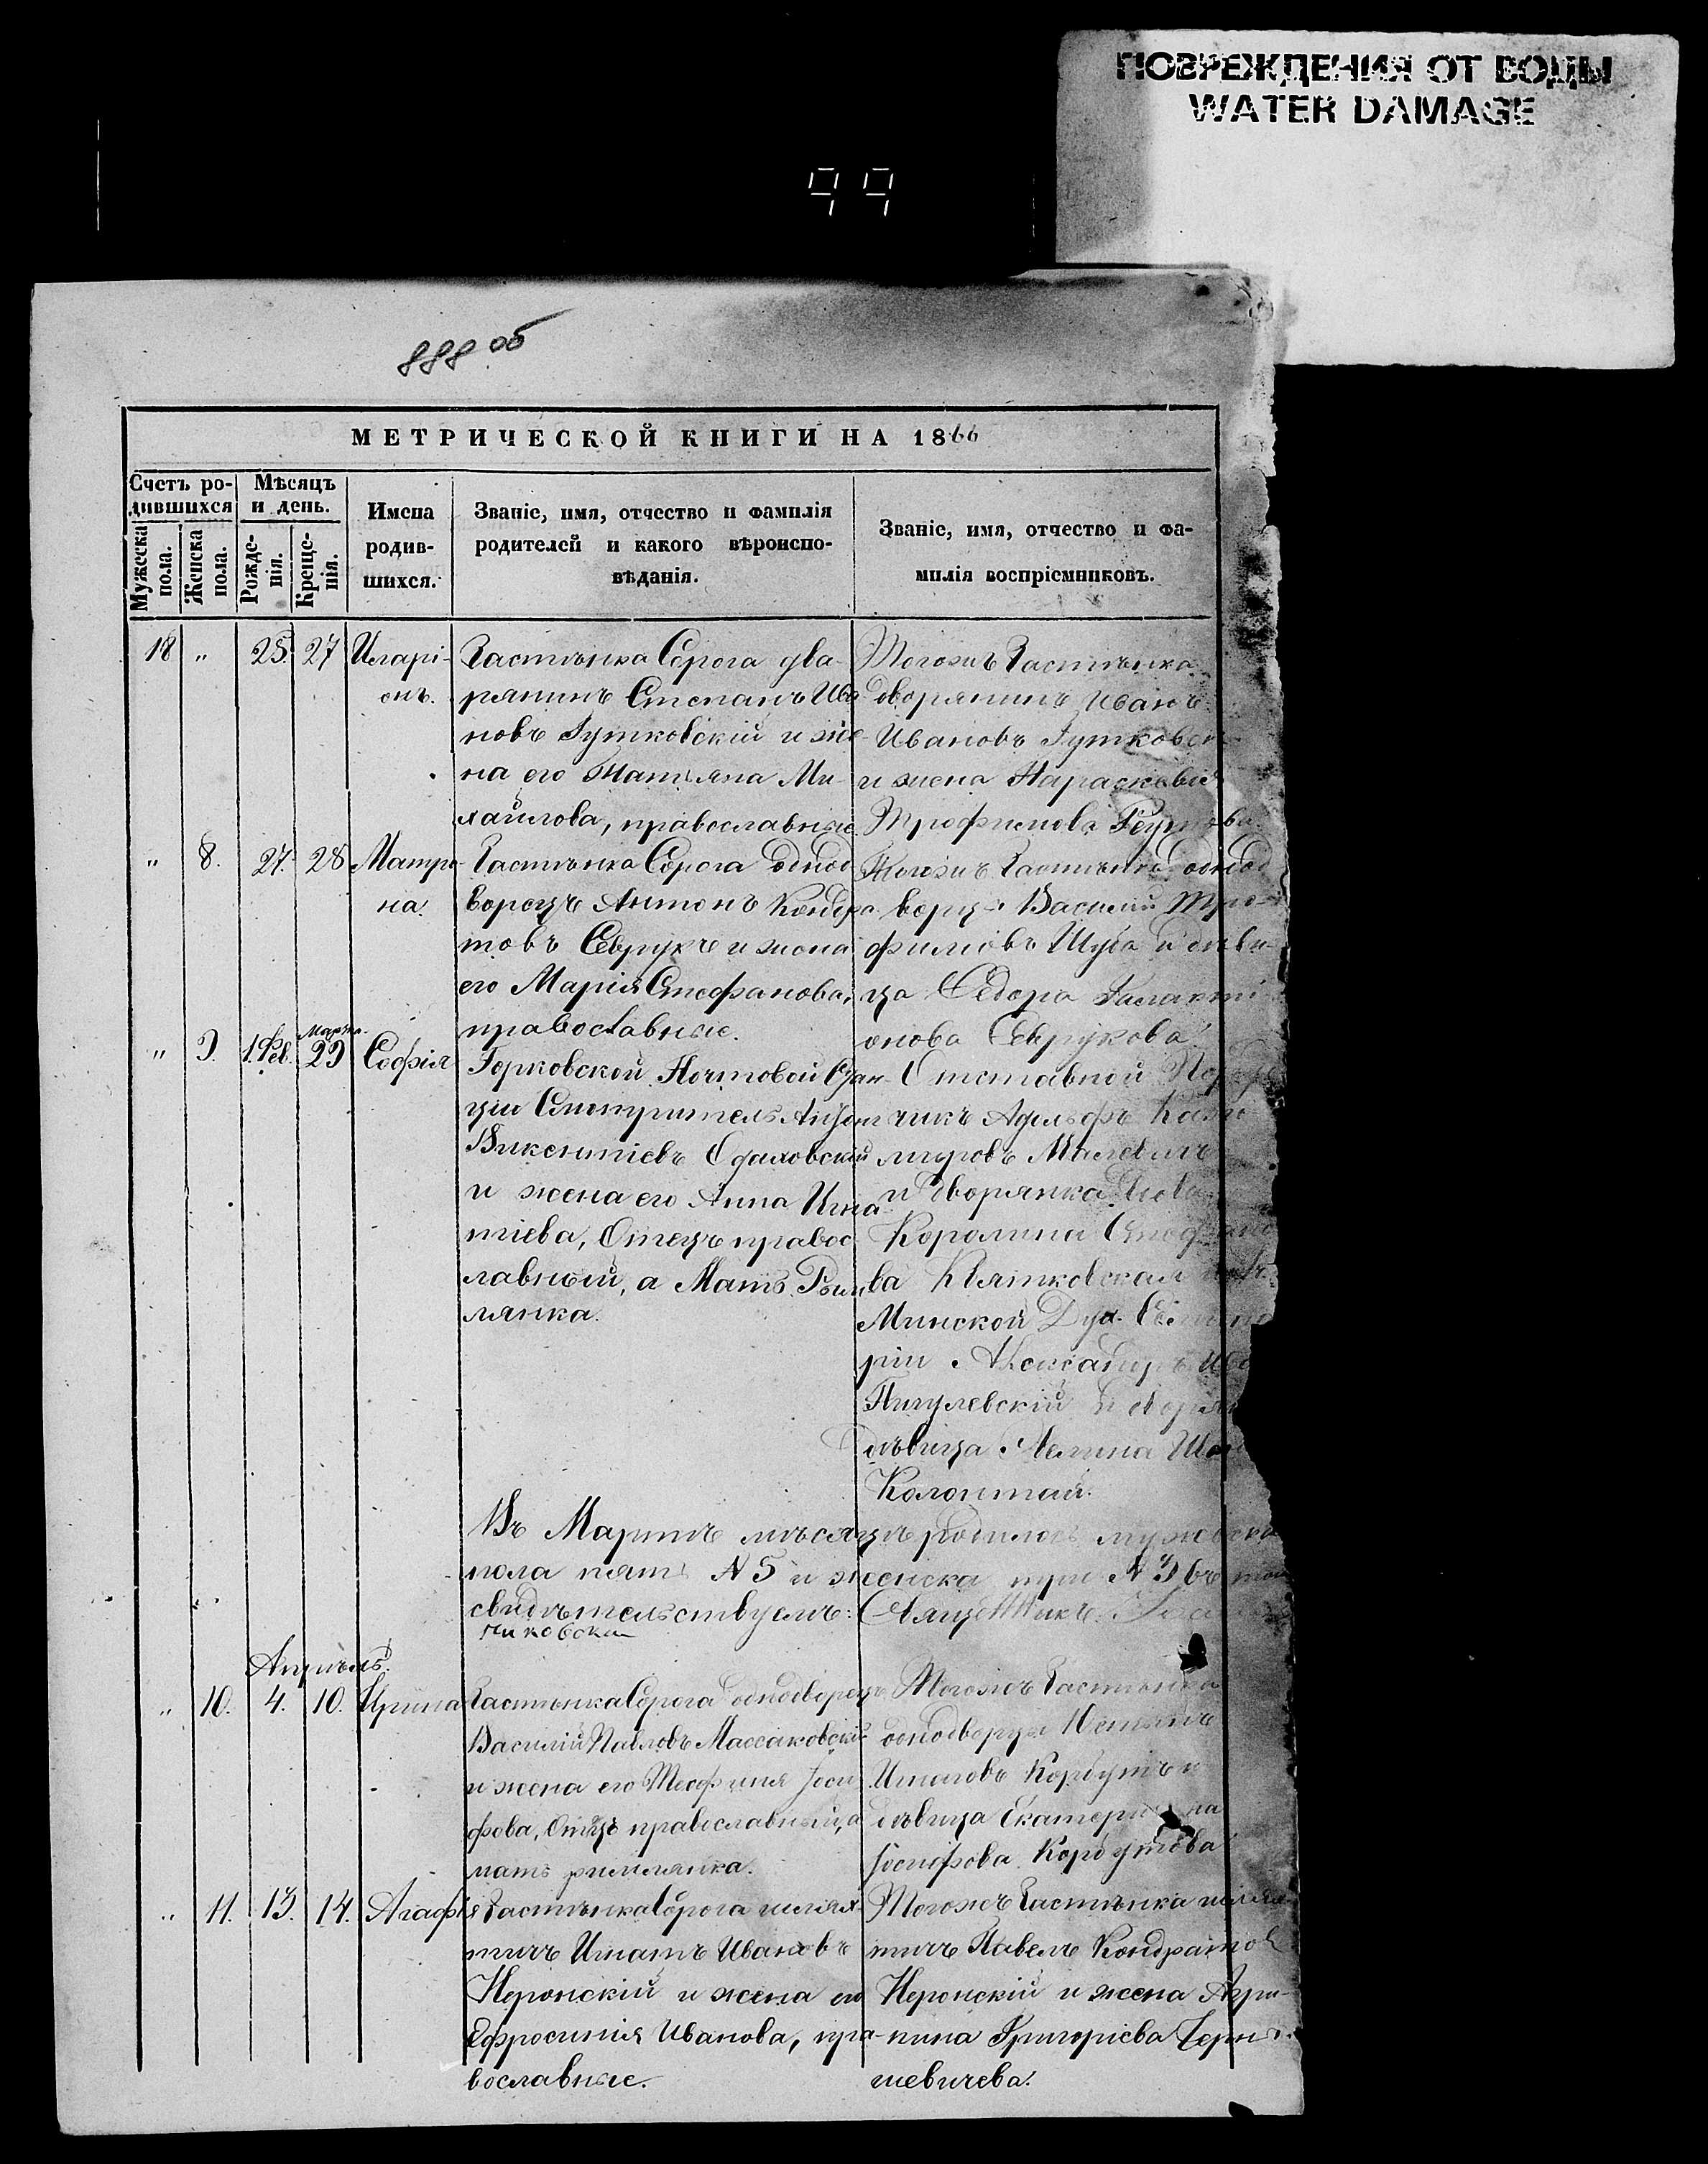 ПОВРЕЖДЕНИЯ ОТ ВОДЫ
WATER DAMAGE
99
888 об
МЕТРИЧЕСКОЙ КНИГИ НА 1866
Счетъ родившихся
Мужеска пола.
Женска пола.
Мѣсяцъ и день.
Рожденія.
Крещенія.
Имена родившихся.
Званіе, имя, отчество и фамилія
родителей и какого вѣроиспо-
вѣданія.
Званіе, имя, отчество и фа-
милія воспріемниковъ.
18 " 25. 27 Иларі-
онъ.
Застѣнка Сорога два-
рянинъ Степанъ Ива
новъ Гутковскій и же
на его Татьяна Ми-
хайлова, православные
Тогожъ Застѣнка
дворянинъ Иванъ
Ивановъ Гутковск
и жена Парасковія
Трофимова
" 8. 27. 28 Матро-
на.
Застѣнка Сорога однод
ворецъ Антонъ Кондра
товъ Севрукъ и жена
его Марія Стефанова,
православные.
Тогожъ Застѣнка однод
ворцъ Василій Тро-
фимовъ Шуба и дѣви-
ца Ѳедора Галакті
онова Севрукова.
" 9. 1. Фев. Марта 29 Софія
Горковской Почтовой Стан-
ціи Смотритель Антон
Викентіевъ Одаховскій
и жена его Анна Игна
тіева, Отецъ правос
лавный, а Мать Рим
лянка.
Отставной
чикъ Адольфъ Кази
мировъ Малевичъ
и дворянка
Королина Стефано
ва Квятковская
Минской Дух. Семина
ріи Александръ Ива
Пигулевскій и дворян
дѣвица Ива
Колонтай.
Въ Мартѣ мѣсяцѣ родилось мужеска
пола пять N 5 и женска три N 3 въ томъ
свидѣтельствуемъ: Священникъ
ковскій
Апрѣль.
" 10. 4. 10. Ирина
Застѣнка Сорога однодворецъ
Василій Павловъ Массаковскій
и жена его Теофилія Іоси
фова, Отецъ православный, а
мать римлянка.
Тогожъ Застѣнка
однодворцы
Игнатовъ Корбутъ и
дѣвица Екатерина
Іосифова Корбутова
" 11. 13. 14. Агафія
Застѣнка Сорога шлях-
тичъ Игнатъ Ивановъ
Неронскій и жена его
Ефросинія Иванова, пра-
вославные.
Тогожъ Застѣнка шлях-
тичъ Павелъ Кондратов
Неронскій и жена Агри-
пина Григоріева Черня-
шевичева.